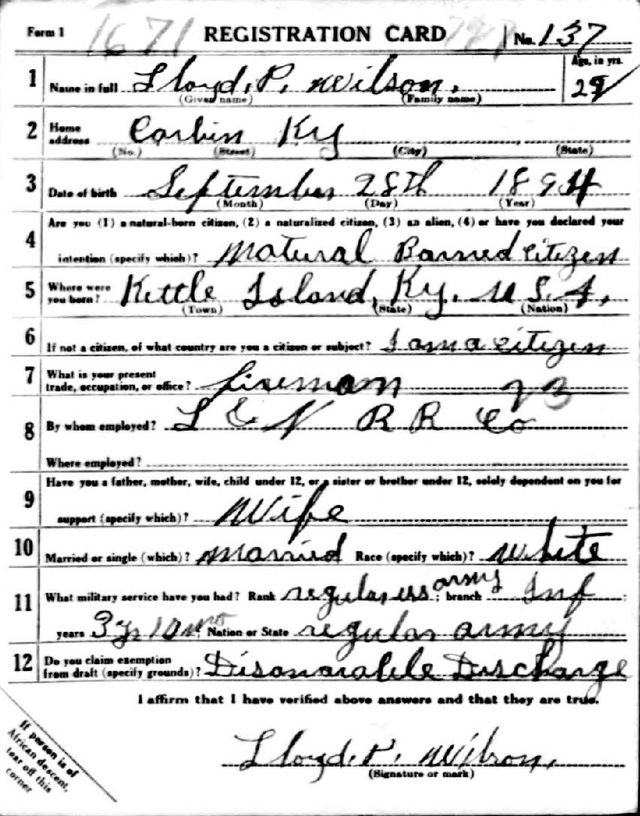 Form 1 1671 REGISTRATION CARD No. 137
1 Name in full Lloyd. P. Wilson. Age, in yrs.
(Given name) (Family name)
2 Home address Corbin Ky
(No.) (Street) (City) (State)
3 Date of birth September 28th 1894
(Month) (Day) (Year)
4 Are you (1) a natural-born citizen, (2) a naturalized citizen, (3) an alien, (4) or have you declared your
intention (specify which)? Natural Borned Citizen
5 Where were you born? Kettle Island, Ky. U S. A,
(Town) (State) (Nation)
6 If not a citizen, of what country are you a citizen or subject? I am a Citizen
7 What is your present trade, occupation, or office? fireman 23
8 By whom employed? L & N R R Co
Where employed?
9 Have you a father, mother, wife, child under 12, or a sister or brother under 12, solely dependent on you for
support (specify which)? Wife
10 Married or single (which)? Married Race (specify which)? White
11 What military service have you had? Rank regular uss army ; branch Inf ;
years 3 yr 10 mo Nation or State regular army
12 Do you claim exemption from draft (specify grounds)? Disonorable Discharge
I affirm that I have verified above answers and that they are true.
Lloyd. P. Wilson.
(Signature or mark)
If person is of
African descent,
tear off this
corner.